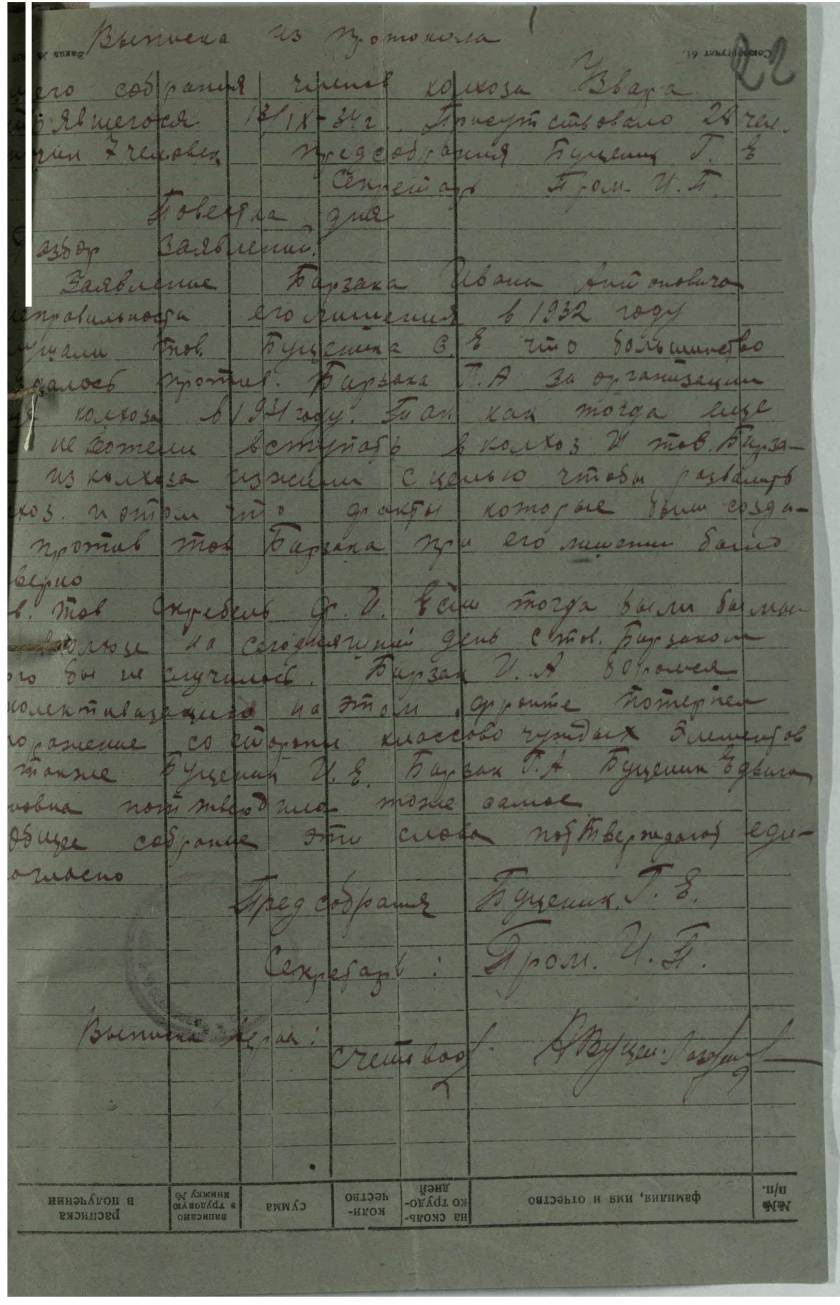 Выписка из протокола
22
его собрания членов колхоза Узвара
явшегося 13/IX-34 г. Присутствовало 28 чел.
7 человек предсобрания Буценик Г. Е
Секретарь Пром. И. П.
Повестка дня
азбор Заявлений.
Заявление Барзака Ивана Антоновича
еправильности его лишения в 1932 году
ушали тов. Буценика С. Е что большинство
далось против. Барзака П. А за организации
колхоза в 1931 году. Так как тогда еще
не хотели вступать в колхоз И тов. Барза-
из колхоза изжили с целью чтобы развалить
хоз. и этом что факты которые были созда-
против тов Барзака при его лишении было
верно
в. тов Скребель Ф. И. если тогда были бы мы
на сегодняшний день с тов. Барзаком
ого бы не случилось. Барзак И. А боролся
колективизацию на этом фронте потерпел
оражение со стороны классово чуждых элементов
также Буценик И. Е. Барзак Г. А Буценик Ядвига
новна поттвердила тоже самое
общее собрание эти слова поттверждают еди-
огласно
Пред собрания Буценик. Г. Е.
Секретарь: Пром. И. П.
Выписка верна:
счетовод
расписка в получении
записано в трудовую книжку №
сумма
коли-чество
на сколь-ко трудо-дней
фамилия, имя и отчество
№№ п/п.